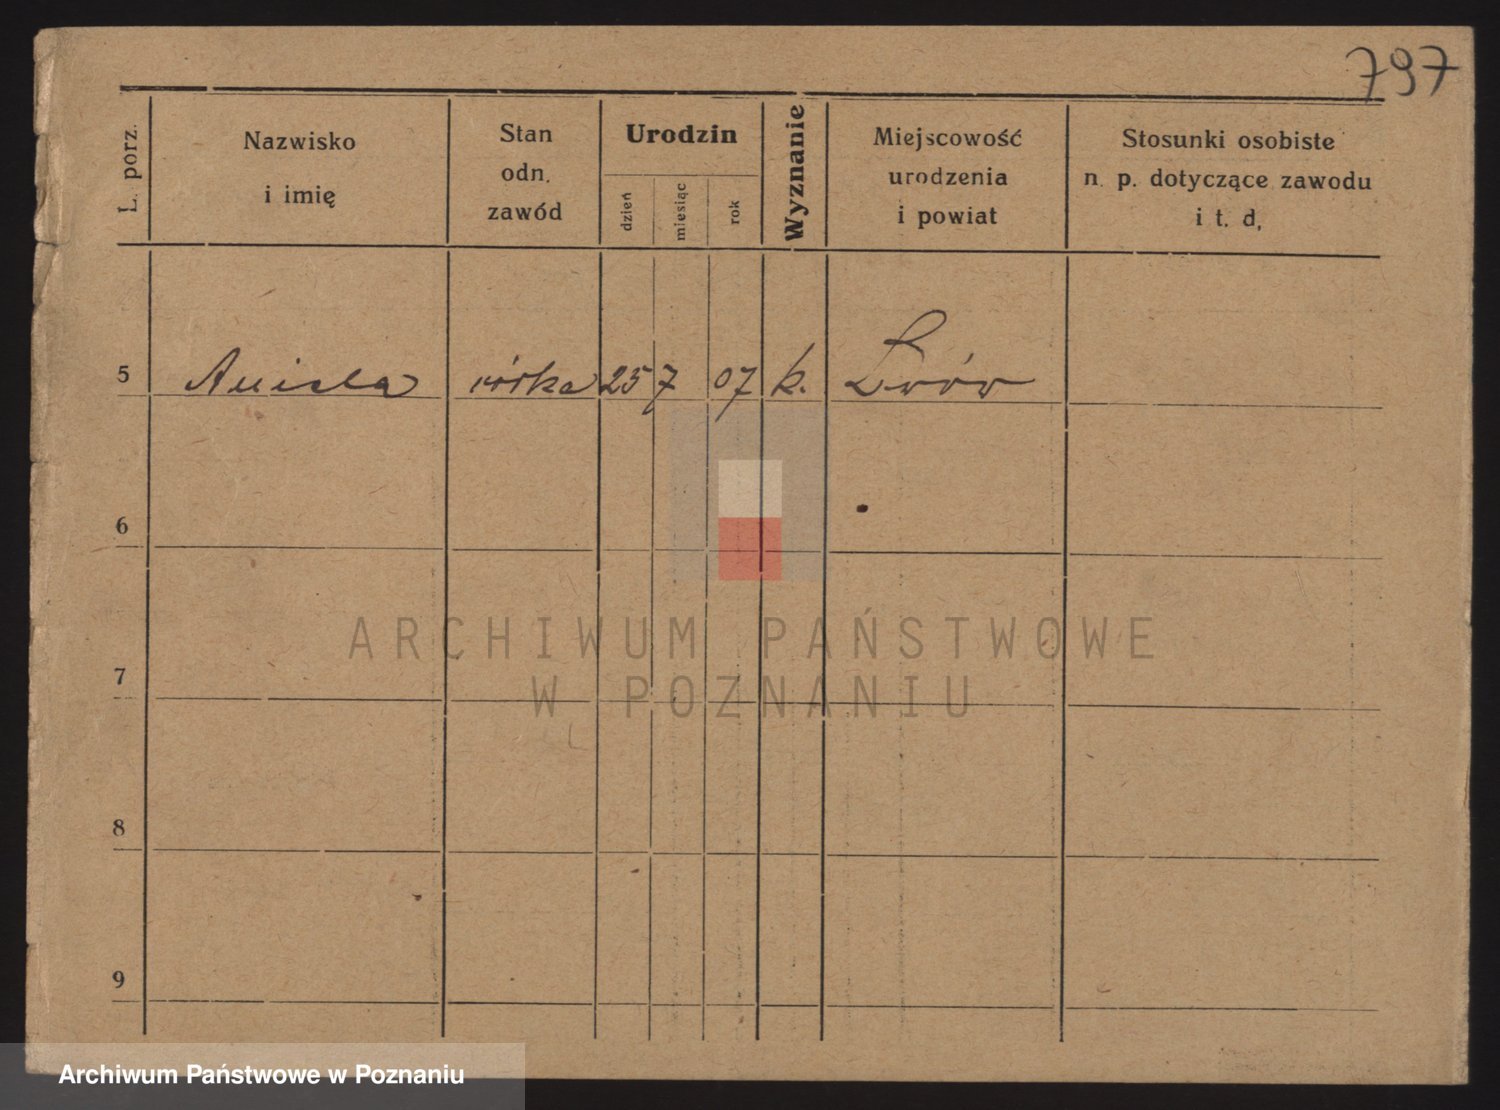 797
L. porz.
Nazwisko
i imię
Stan
odn.
zawód
Urodzin
dzień
miesiąc
rok
Wyznanie
Miejscowość
urodzenia
i powiat
Stosunki osobiste
n. p. dotyczące zawodu
i t. d,
5 Aniela córka 25 7 07 k. Lwów
6
7
8
9
ARCHIWUM PAŃSTWOWE
W POZNANIU
Archiwum Państwowe w Poznaniu